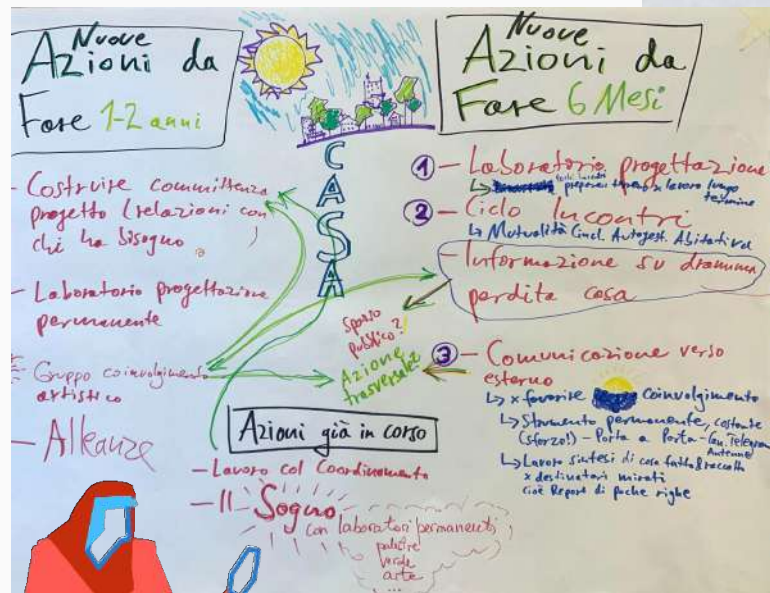 Nuove
Azioni da
Fare 1-2 anni
- Costruire committenza
progetto (relazioni con
chi ha bisogno)
- Laboratorio progettazione
permanente
- Gruppo coinvolgimento
artistico
- Alleanze
CASA
Spazio
pubblico?
Azione
trasversale?
Azioni già in corso
- Lavoro col Coordinamento
- Il Sogno
con laboratori permanenti
pulire
verde
arte
...
Nuove
Azioni da
Fare 6 Mesi
1 - Laboratorio progettazione
preparare x lavoro lungo
termine
2 - Ciclo Incontri
↳ Mutualità (incl. Autogest. Abitativa
- Informazione su dramma
perdita casa
3 - Comunicazione verso
esterno
↳ x favorire coinvolgimento
↳ Strumento permanente, costante
(sforzo!) - Porta a Porta - Can. Telegram
Antenne
↳ Lavoro sintesi di cosa fatto & raccolto
x destinatari mirati
cioè Report di poche righe